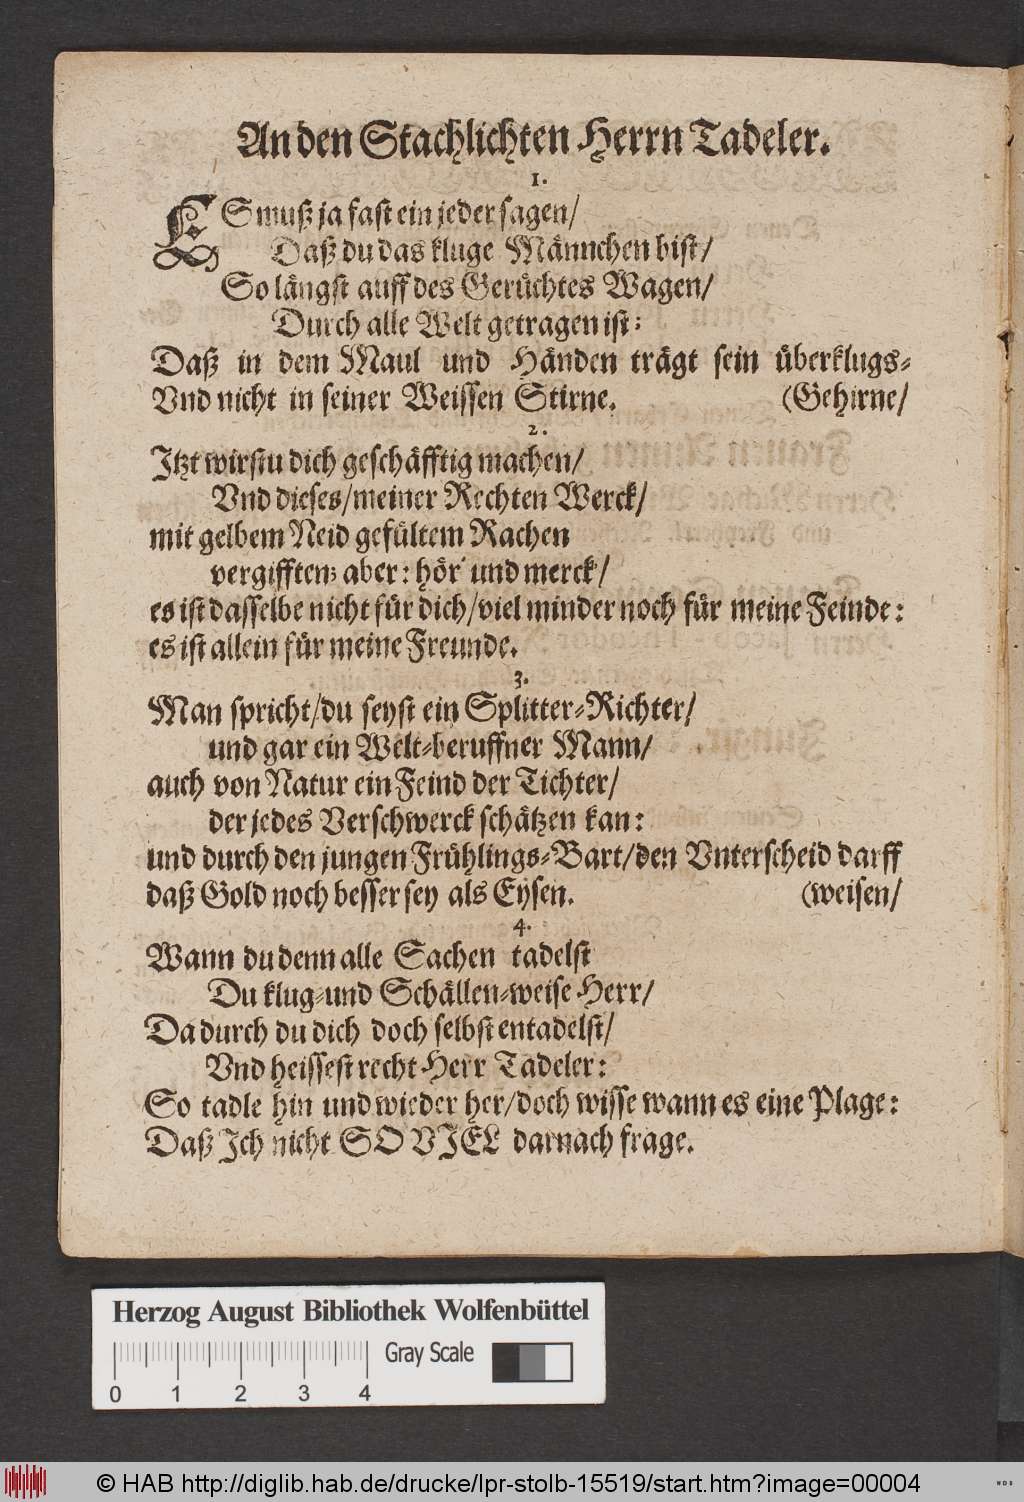 An den Stachlichten Herrn Tadeler.
1.
ES muß ja fast ein jeder sagen/
Daß du das kluge Männchen bist/
So längst auff des Gerüchtes Wagen/
Durch alle Welt getragen ist:
Daß in dem Maul und Händen trägt sein überklugs-
Vnd nicht in seiner Weissen Stirne. (Gehirne/
2.
Jtzt wirstu dich geschäfftig machen/
Vnd dieses/meiner Rechten Werck/
mit gelbem Neid gefültem Rachen
vergifften; aber: hör' und merck/
es ist dasselbe nicht für dich/viel minder noch für meine Feinde:
es ist allein für meine Freunde.
3.
Man spricht/du seyst ein Splitter-Richter/
und gar ein Welt-beruffner Mann/
auch von Natur ein Feind der Tichter/
der jedes Verschwerck schätzen kan:
und durch den jungen Frühlings-Bart/den Vnterscheid darff
daß Gold noch besser sey als Eysen. (weisen/
4.
Wann du denn alle Sachen tadelst
Du klug-und Schällen-weise Herr/
Da durch du dich doch selbst entadelst/
Vnd heissest recht Herr Tadeler:
So tadle hin und wieder her/doch wisse wann es eine Plage:
Daß Jch nicht SO VJEL darnach frage.
Herzog August Bibliothek Wolfenbüttel
Gray Scale
0 1 2 3 4
© HAB http://diglib.hab.de/drucke/lpr-stolb-15519/start.htm?image=00004